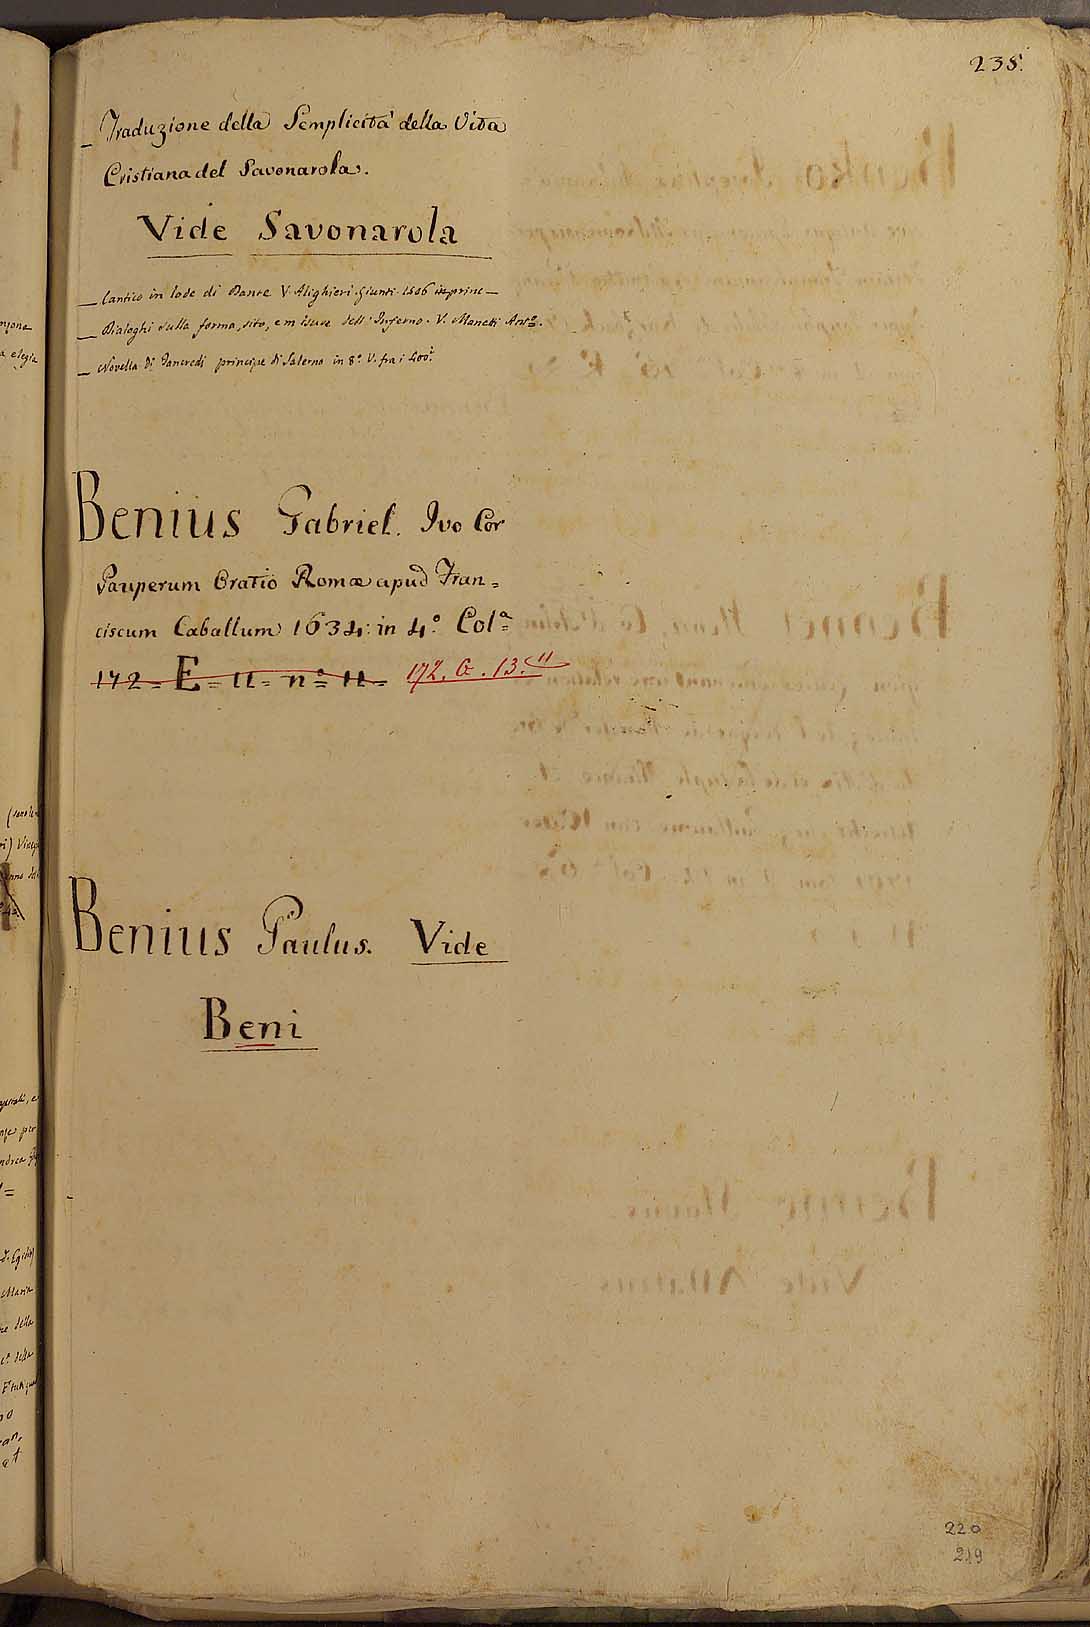 238.
_ Traduzione della Semplicità della Vita
Cristiana del Savonarola.
Vide Savonarola
_ Cantico in lode di Dante V. Alighieri Giunti 1506 in princ_
_ Dialoghi sulla forma, sito, e misure dell'Inferno. V. Manetti Antº.
_ Novella di Tancredi principe di Salerno in 8º. V. fra i 400ⁱ
Benius Gabriel. Ivo Cor
Pauperum Oratio Romæ apud Fran=
ciscum Caballum 1634: in 4º. Colª
172= E= 11= nº= 11= 172. G. 13. 11
Benius Paulus. Vide
Beni
220
219